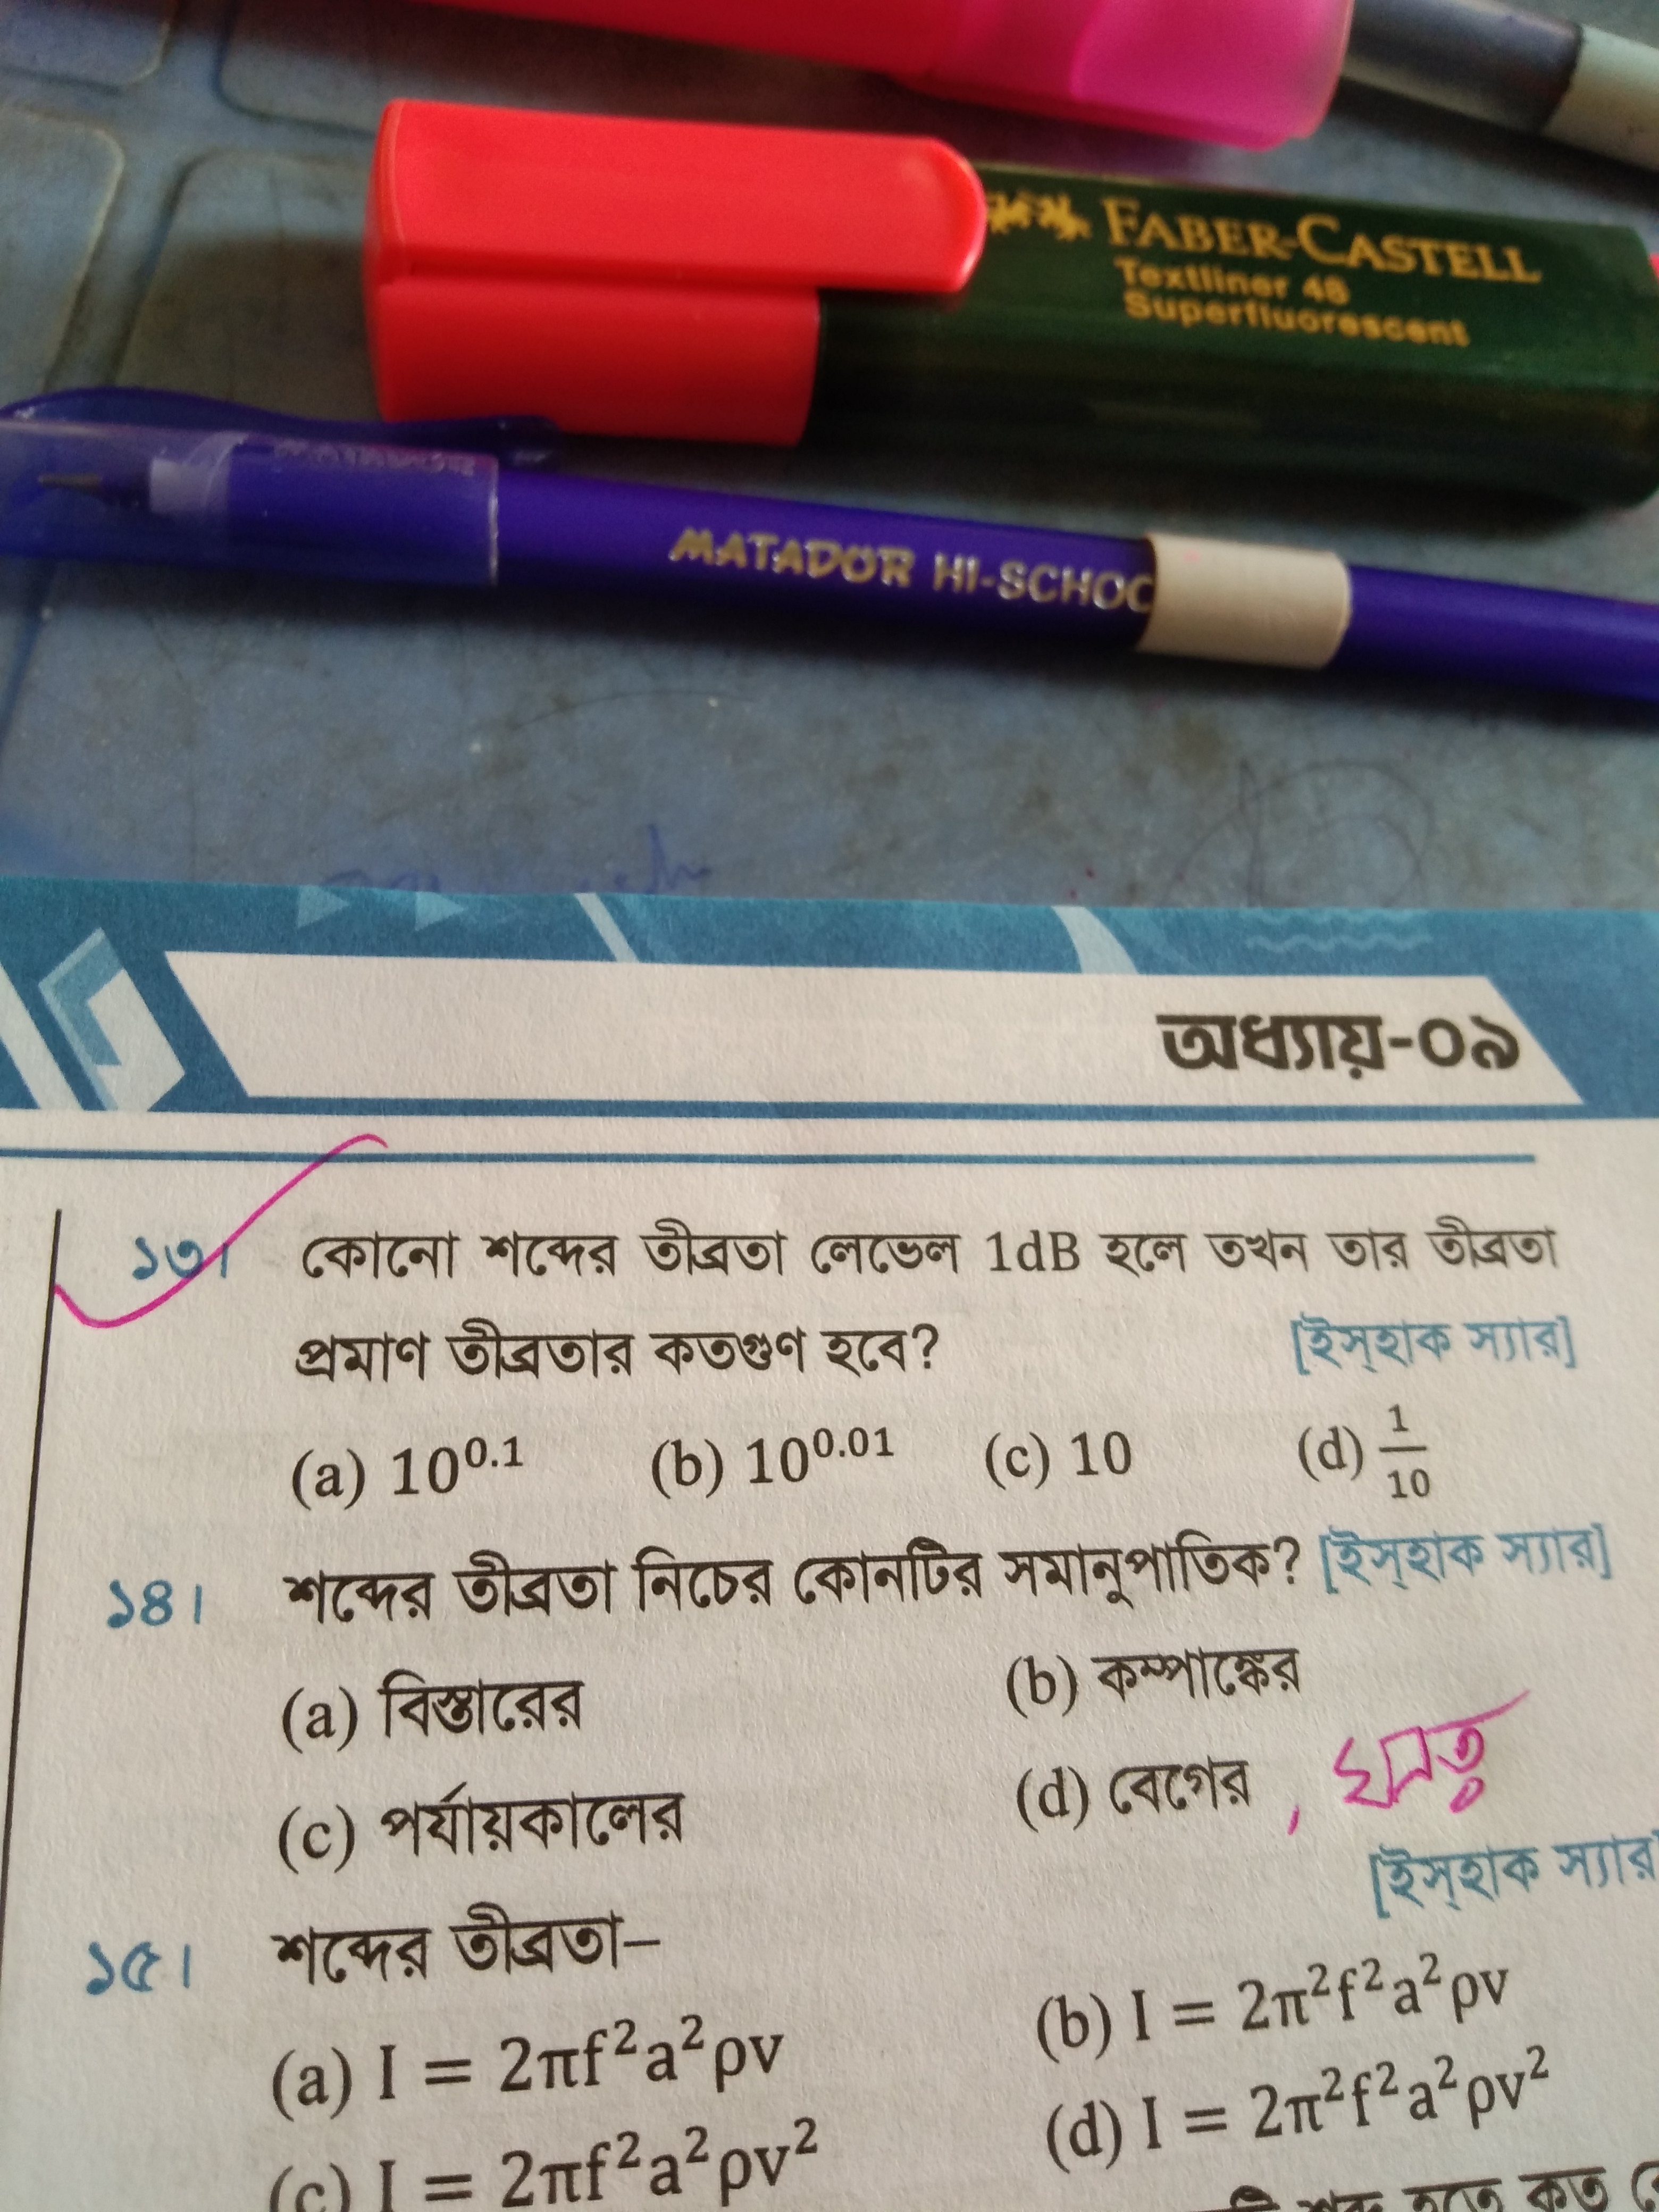 FABER-CASTELL
Textliner 48
Superfluorescent
MATADOR HI-SCHOO
অধ্যায়-০৯
১৩। কোনো শব্দের তীব্রতা লেভেল 1dB হলে তখন তার তীব্রতা
প্রমাণ তীব্রতার কতগুণ হবে? [ইস্‌হাক স্যার]
(a) 10^0.1 (b) 10^0.01 (c) 10 (d) 1/10
১৪। শব্দের তীব্রতা নিচের কোনটির সমানুপাতিক? [ইস্‌হাক স্যার]
(a) বিস্তারের (b) কম্পাঙ্কের
(c) পর্যায়কালের (d) বেগের , ঘনত্ব
১৫। শব্দের তীব্রতা– [ইস্‌হাক স্যার]
(a) I = 2πf²a²ρv (b) I = 2π²f²a²ρv
(c) I = 2πf²a²ρv² (d) I = 2π²f²a²ρv²